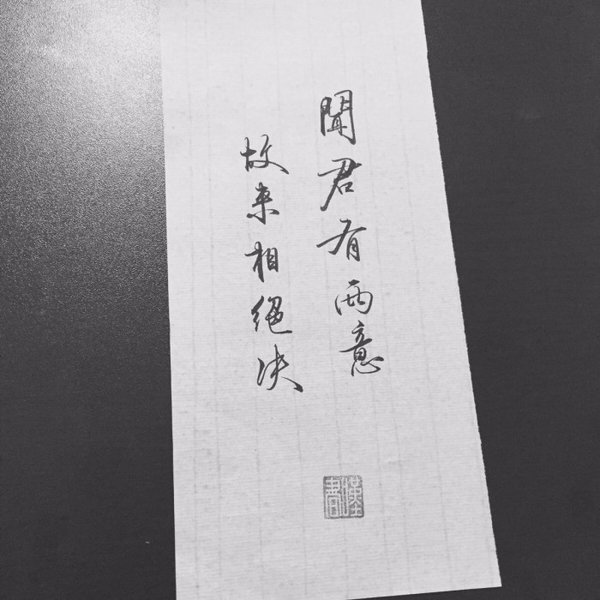 聞君有兩意
故来相絕决